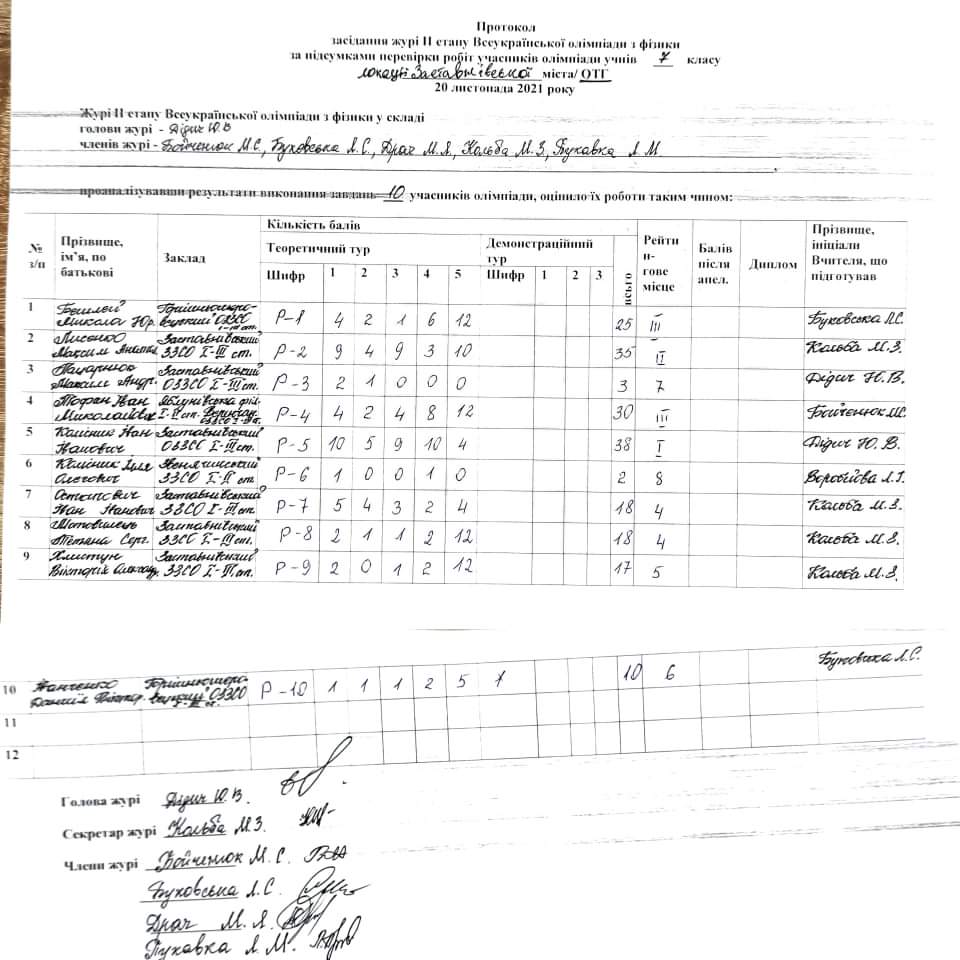 Протокол
засідання журі ІІ етапу Всеукраїнської олімпіади з фізики
за підсумками перевірки робіт учасників олімпіади учнів 7 класу
локації Заставнівської міста/ ОТГ
20 листопада 2021 року
Журі ІІ етапу Всеукраїнської олімпіади з фізики у складі
голови журі - Дідич Ю.В
членів журі - Бойченюк М.С., Буковська Л.С., Драч М.Я., Кольба М.З, Пукавка Л.М.
проаналізувавши результати виконання завдань 10 учасників олімпіади, оцінило їх роботи таким чином:
№ з/п Прізвище, ім’я, по батькові Заклад Кількість балів Рейтингове місце Балів після апел. Диплом Прізвище, ініціали Вчителя, що підготував
Теоретичний тур Демонстраційний тур всього
Шифр 1 2 3 4 5 Шифр 1 2 3
1 Микола Юр. ОЗЗСО І-ІІІ ст. Р-1 4 2 1 6 12 25 ІІІ Буковська Л.С.
2 Максим Заставнівський ЗЗСО І-ІІІ ст. Р-2 9 4 9 3 10 35 ІІ Кольба М.З.
3 Максим Андр. Заставнівський ОЗЗСО І-ІІІ ст. Р-3 2 1 0 0 0 3 7 Дідич Ю.В.
4 Тофан Іван Миколайович Яблунівська філ. І-ІІ ст. ОЗЗСО І-ІІІ ст. Р-4 4 2 4 8 12 30 ІІІ Бойченюк М.С.
5 Колісник Іван Іванович Заставнівський ОЗЗСО І-ІІІ ст. Р-5 10 5 9 10 4 38 І Дідич Ю.В.
6 Колісник Ілля Олегович ЗЗСО І-ІІ ст. Р-6 1 0 0 1 0 2 8 Воробйова Л.Г.
7 Остапович Іван Іванович Заставнівський ЗЗСО І-ІІІ ст. Р-7 5 4 3 2 4 18 4 Кольба М.З.
8 Тетяна Серг. Заставнівський ЗЗСО І-ІІІ ст. Р-8 2 1 1 2 12 18 4 Кольба М.З.
9 Хмистун Вікторія Заставнівський ЗЗСО І-ІІІ ст. Р-9 2 0 1 2 12 17 5 Кольба М.З.
10 Панченко Даниїл Віктор. ОЗЗСО І-ІІІ ст. Р-10 1 1 1 2 5 7 10 6 Буковська Л.С.
11
12
Голова журі Дідич Ю.В.
Секретар журі Кольба М.З.
Члени журі Бойченюк М.С.
Буковська Л.С.
Драч М.Я.
Пукавка Л.М.